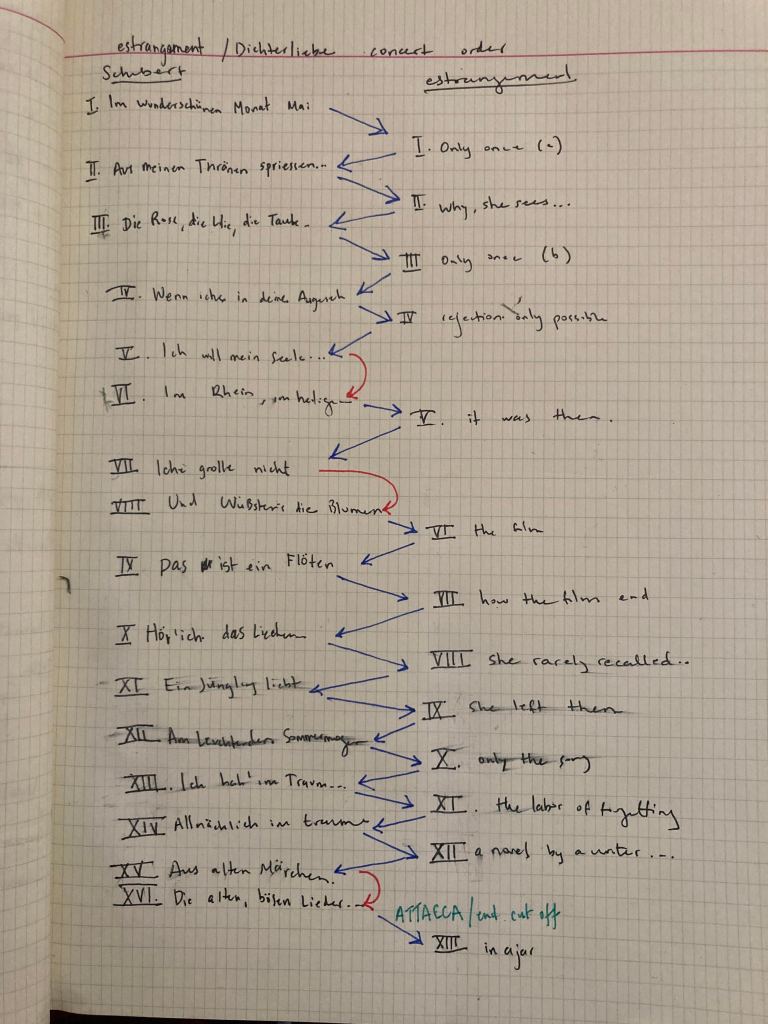 estrangement / Dichterliebe concert order
Schubert
estrangement
I. Im wunderschönen Monat Mai
I. Only once (a)
II. Aus meinen Thränen spriessen...
II. Why, she sees...
III. Die Rose, die Lilie, die Taube
III only once (b)
IV. Wenn ich in deine Augen
IV rejection only possible
V. Ich will mein Seele...
VI. Im Rhein, im heiligen
V. it was then.
VII Ich grolle nicht
VIII Und Wüßten's die Blumen
VI the film
IX Das ist ein Flöten
VII how the film end
X Hör' ich das Liedchen
VIII she rarely recalled..
XI Ein Jüngling liebt
IX she left then
XII Am leuchtenden Sommermorgen
X. only the song
XIII. Ich hab' im Traum...
XI. the labor of forgetting
XIV Allnächtlich im traume
XII a novel by a writer...
XV Aus alten Märchen.
XVI. Die alten, bösen Lieder...
ATTACCA/end cut off
XIII in ajar